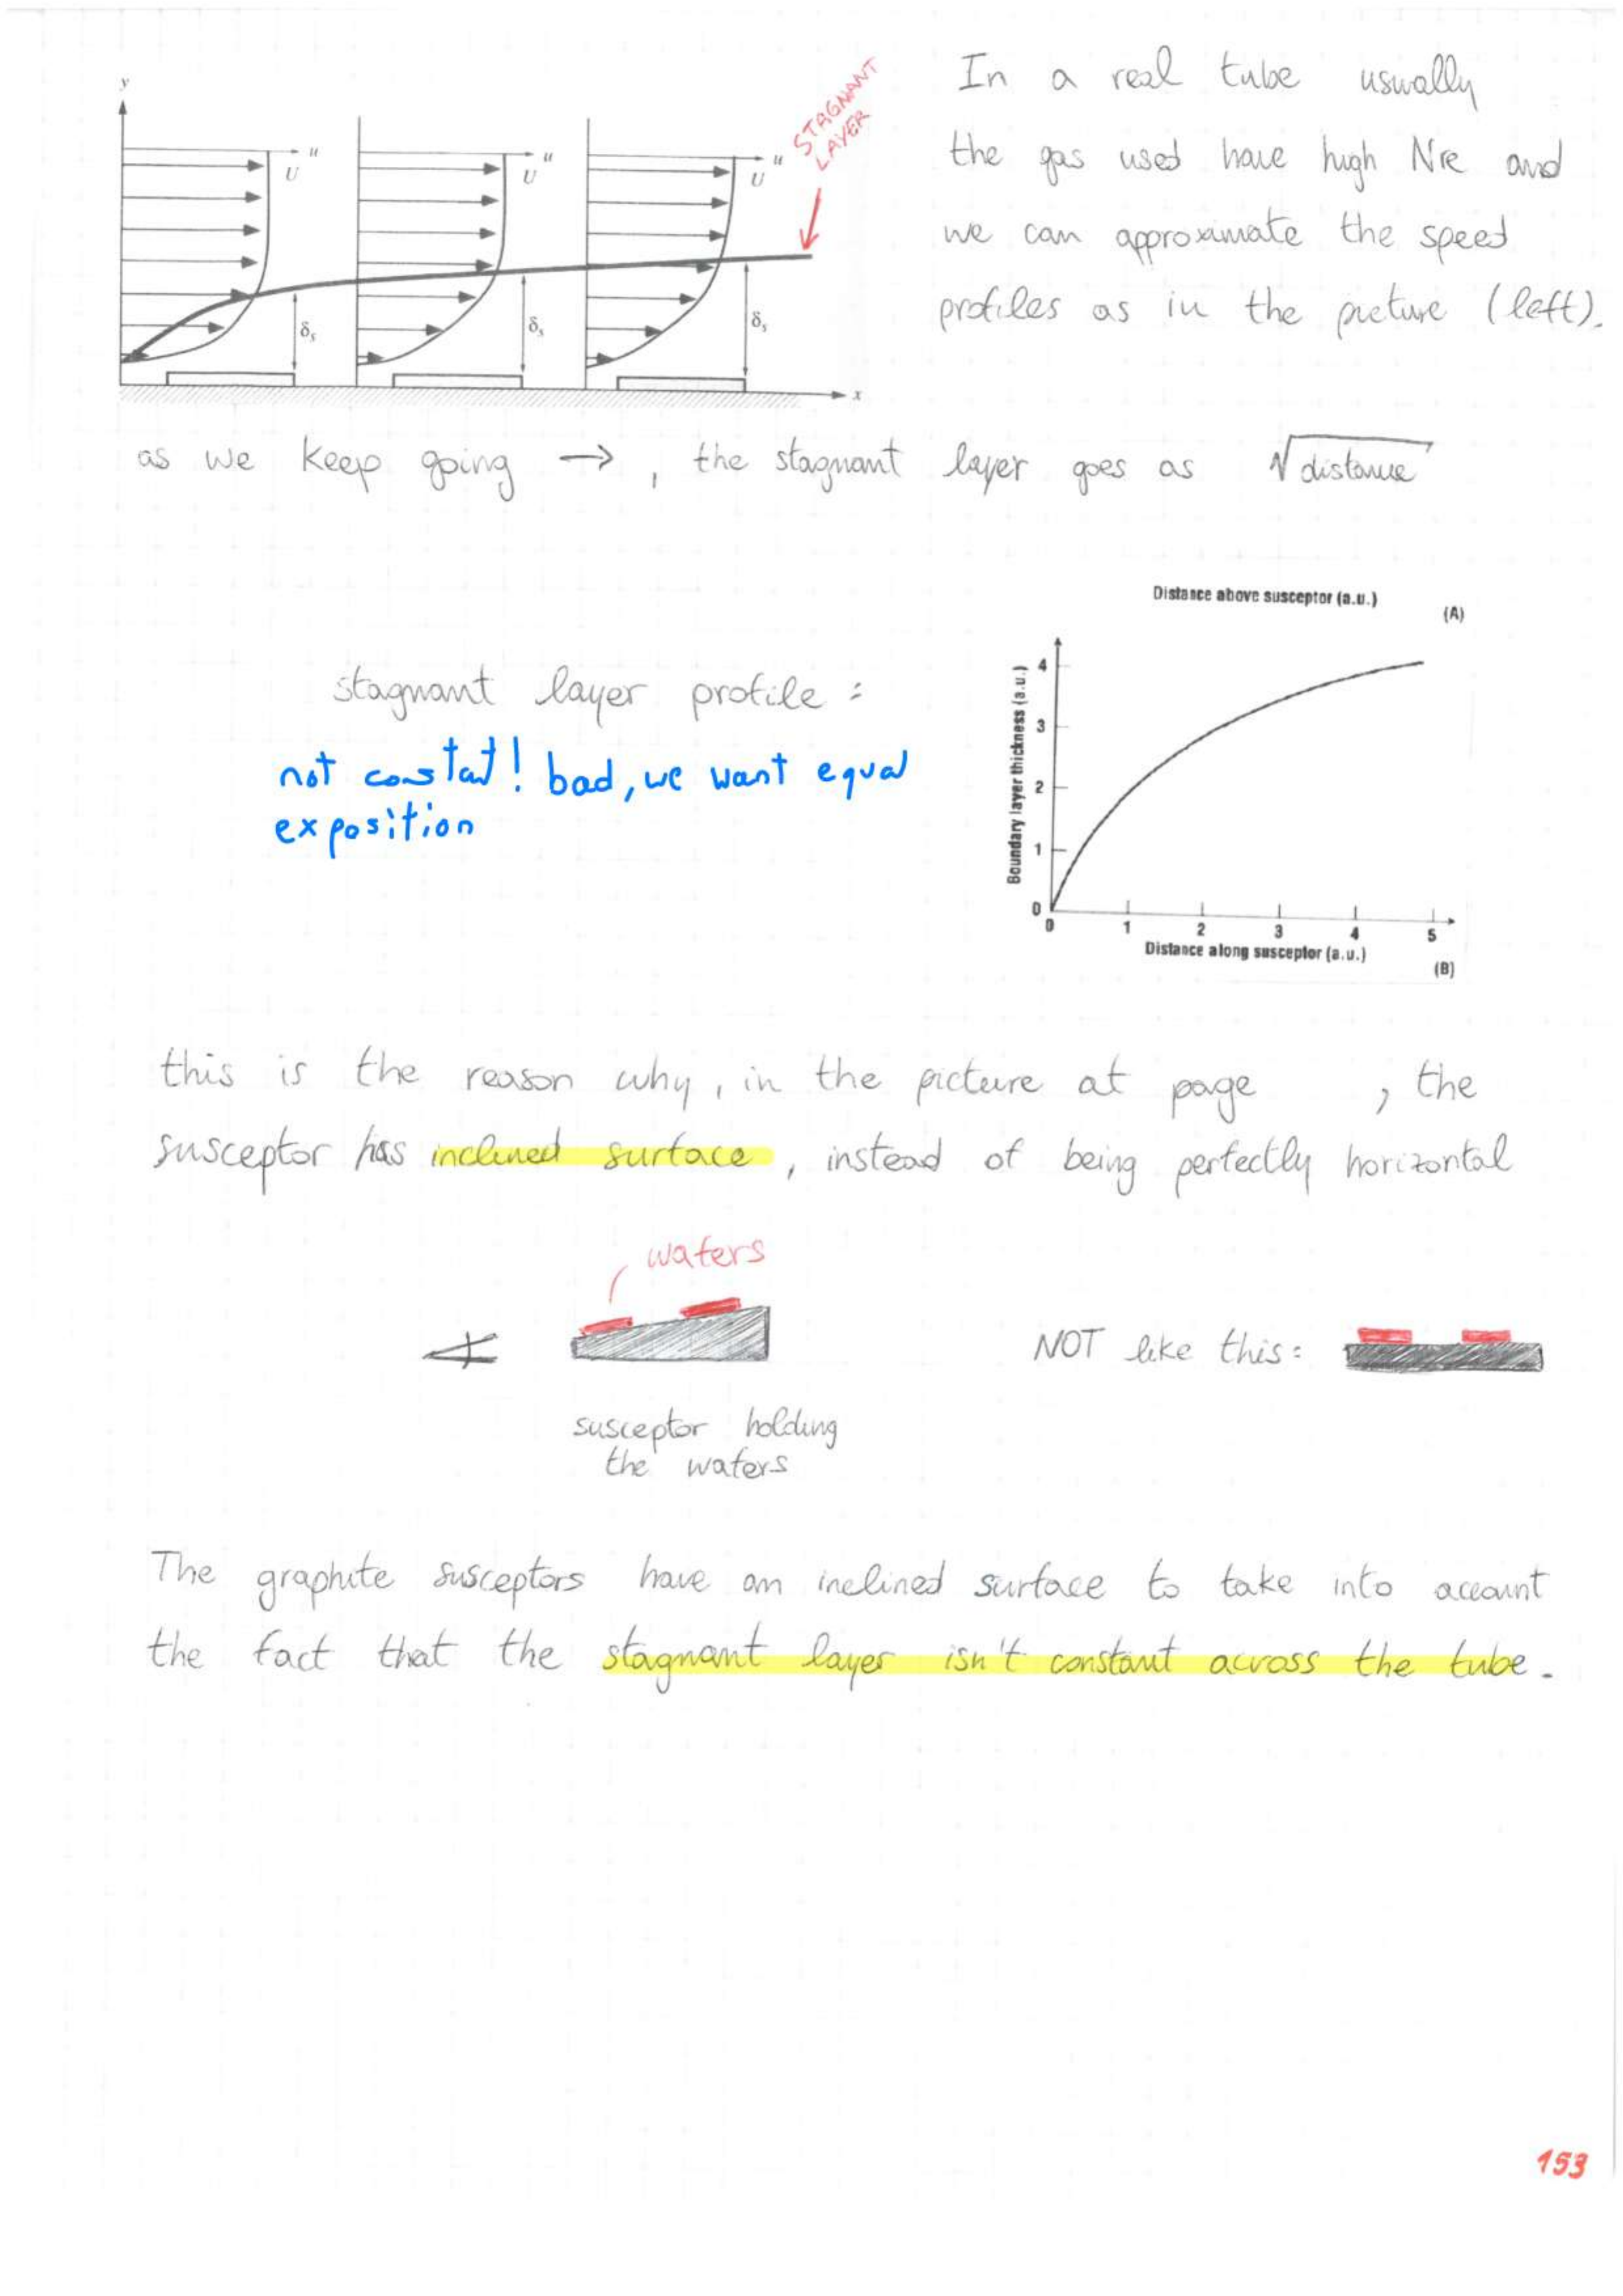 y
u
U
u
U
u
U
STAGNANT
LAYER
δs
δs
δs
x
In a real tube usually
the gas used have high Nre and
we can approximate the speed
profiles as in the picture (left).
as we keep going → , the stagnant layer goes as √distance
Distance above susceptor (a.u.)
(A)
stagnant layer profile :
not constant! bad, we want equal
exposition
Boundary layer thickness (a.u.)
4
3
2
1
0
0 1 2 3 4 5
Distance along susceptor (a.u.)
(B)
this is the reason why, in the picture at page , the
susceptor has inclined surface, instead of being perfectly horizontal
wafers
NOT like this:
susceptor holding
the wafers
The graphite susceptors have an inclined surface to take into account
the fact that the stagnant layer isn't constant across the tube.
153